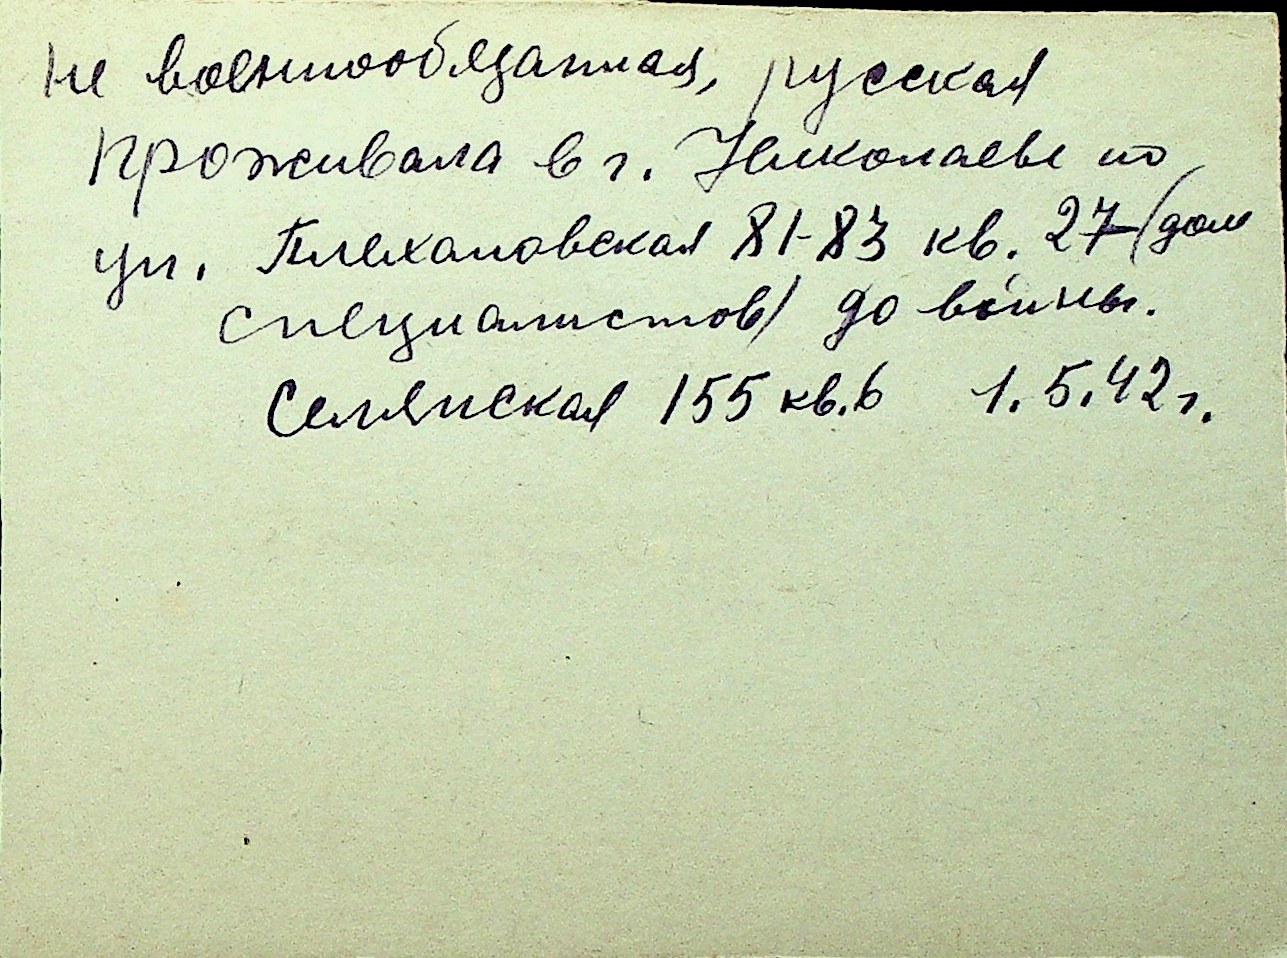 не военнообязанная, русская
проживала в г. Николаеве по
ул. Плехановская 81-83 кв. 27 (дом
специалистов) до войны.
Селянская 155 кв. 6 1.5.42 г.